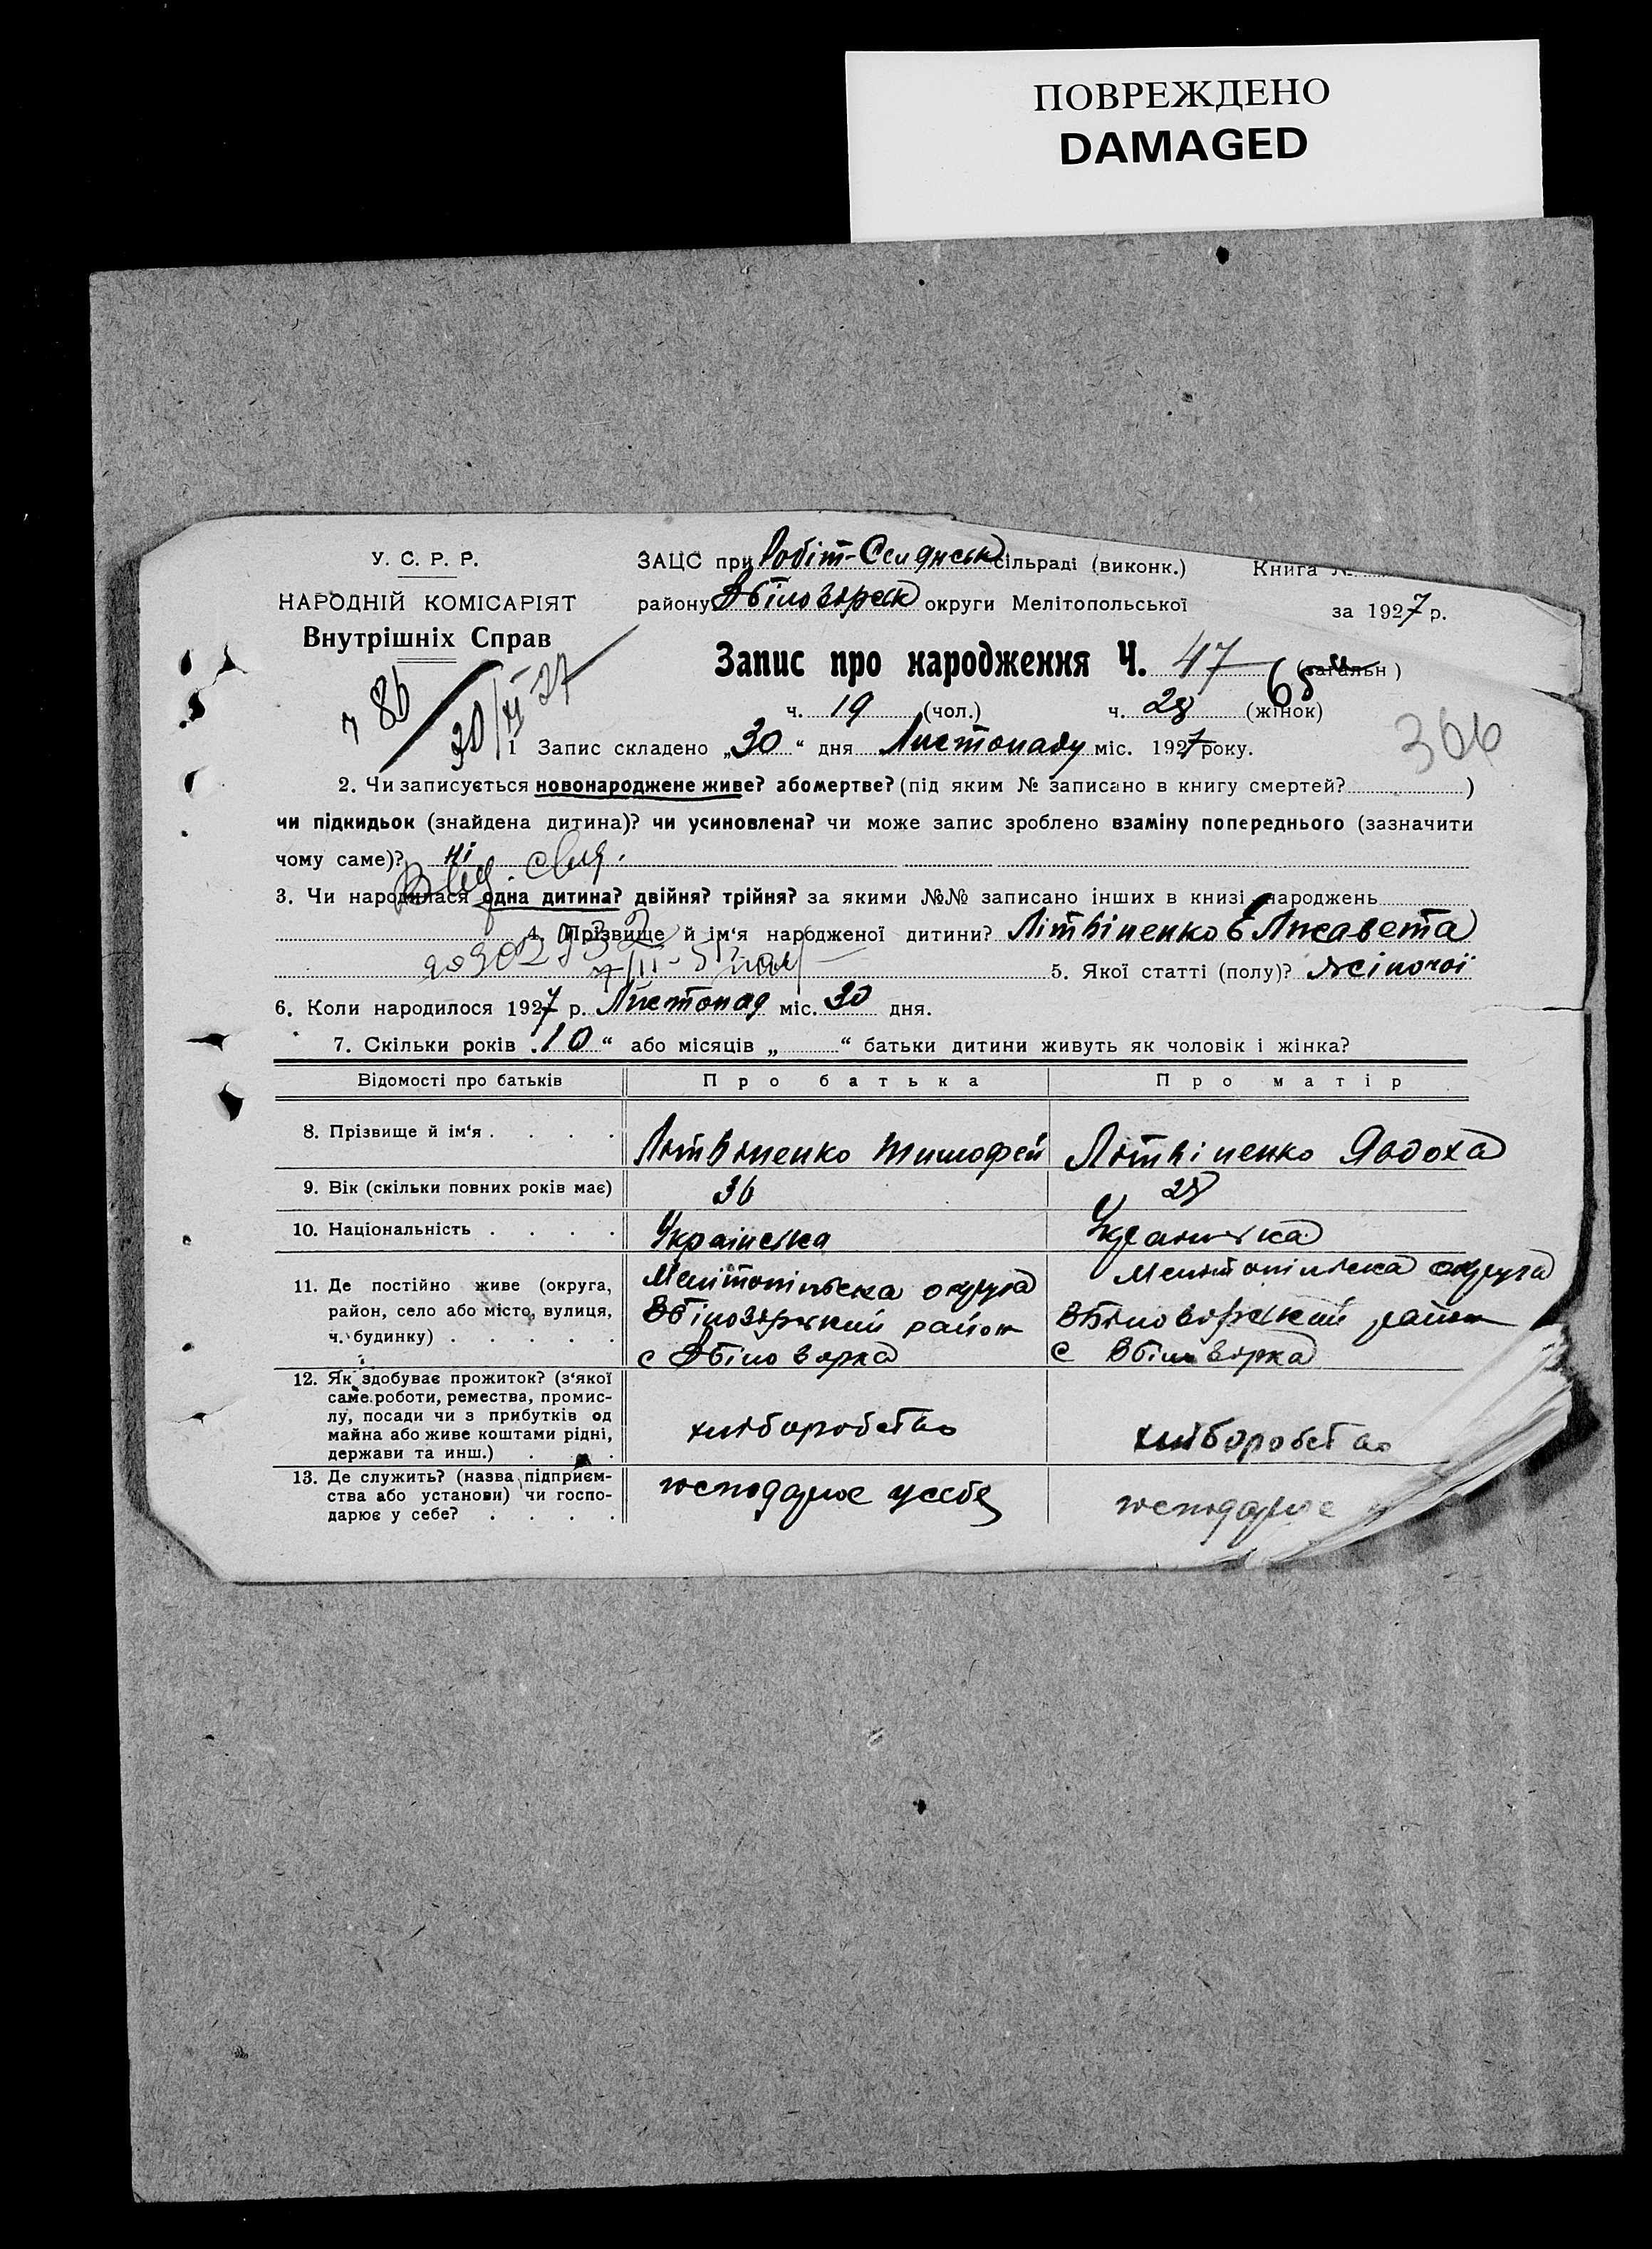 ПОВРЕЖДЕНО
DAMAGED
У. С. Р. Р.
НАРОДНІЙ КОМІСАРІЯТ
Внутрішніх Справ
ЗАЦС при Робіт-Селянськ сільраді (виконк.) Книга №
району округи Мелітопольської за 1927 р.
Запис про народження Ч. 47 (загальн)
ч. 19 (чол.) ч. 28 (жінок)
306
30/XI 27
1 Запис складено „30“ дня Листопаду міс. 1927 року.
2. Чи записується новонароджене живе? або мертве? (під яким № записано в книгу смертей? )
чи підкидьок (знайдена дитина)? чи усиновлена? чи може запис зроблено взаміну попереднього (зазначити
чому саме)? ні
3. Чи народилася одна дитина? двійня? трійня? за якими №№ записано інших в книзі народжень
4. Прізвище й ім‘я народженої дитини? Літвіненко Єлисавета
5. Якої статті (полу)? жіночої
6. Коли народилося 1927 р. Листопад міс. 30 дня.
7. Скільки років „10“ або місяців „ “ батьки дитини живуть як чоловік і жінка?
Відомості про батьків Про батька Про матір
8. Прізвище й ім‘я . . . . Літвіненко Тимофей Літвіненко Явдоха
9. Вік (скільки повних років має) 36 28
10. Національність . . . . Українська Українська
11. Де постійно живе (округа, Мелітопільска округа Мелітопільска округа
район, село або місто, вулиця, район район
ч. будинку) . . . . . с с
12. Як здобуває прожиток? (з‘якої
саме роботи, ремества, промис-
лу, посади чи з прибутків од
майна або живе коштами рідні, хліборобство хліборобство
держави та инш.) . . .
13. Де служить? (назва підприєм-
ства або установи) чи госпо- господарює у себе господарює
дарює у себе? . . . .